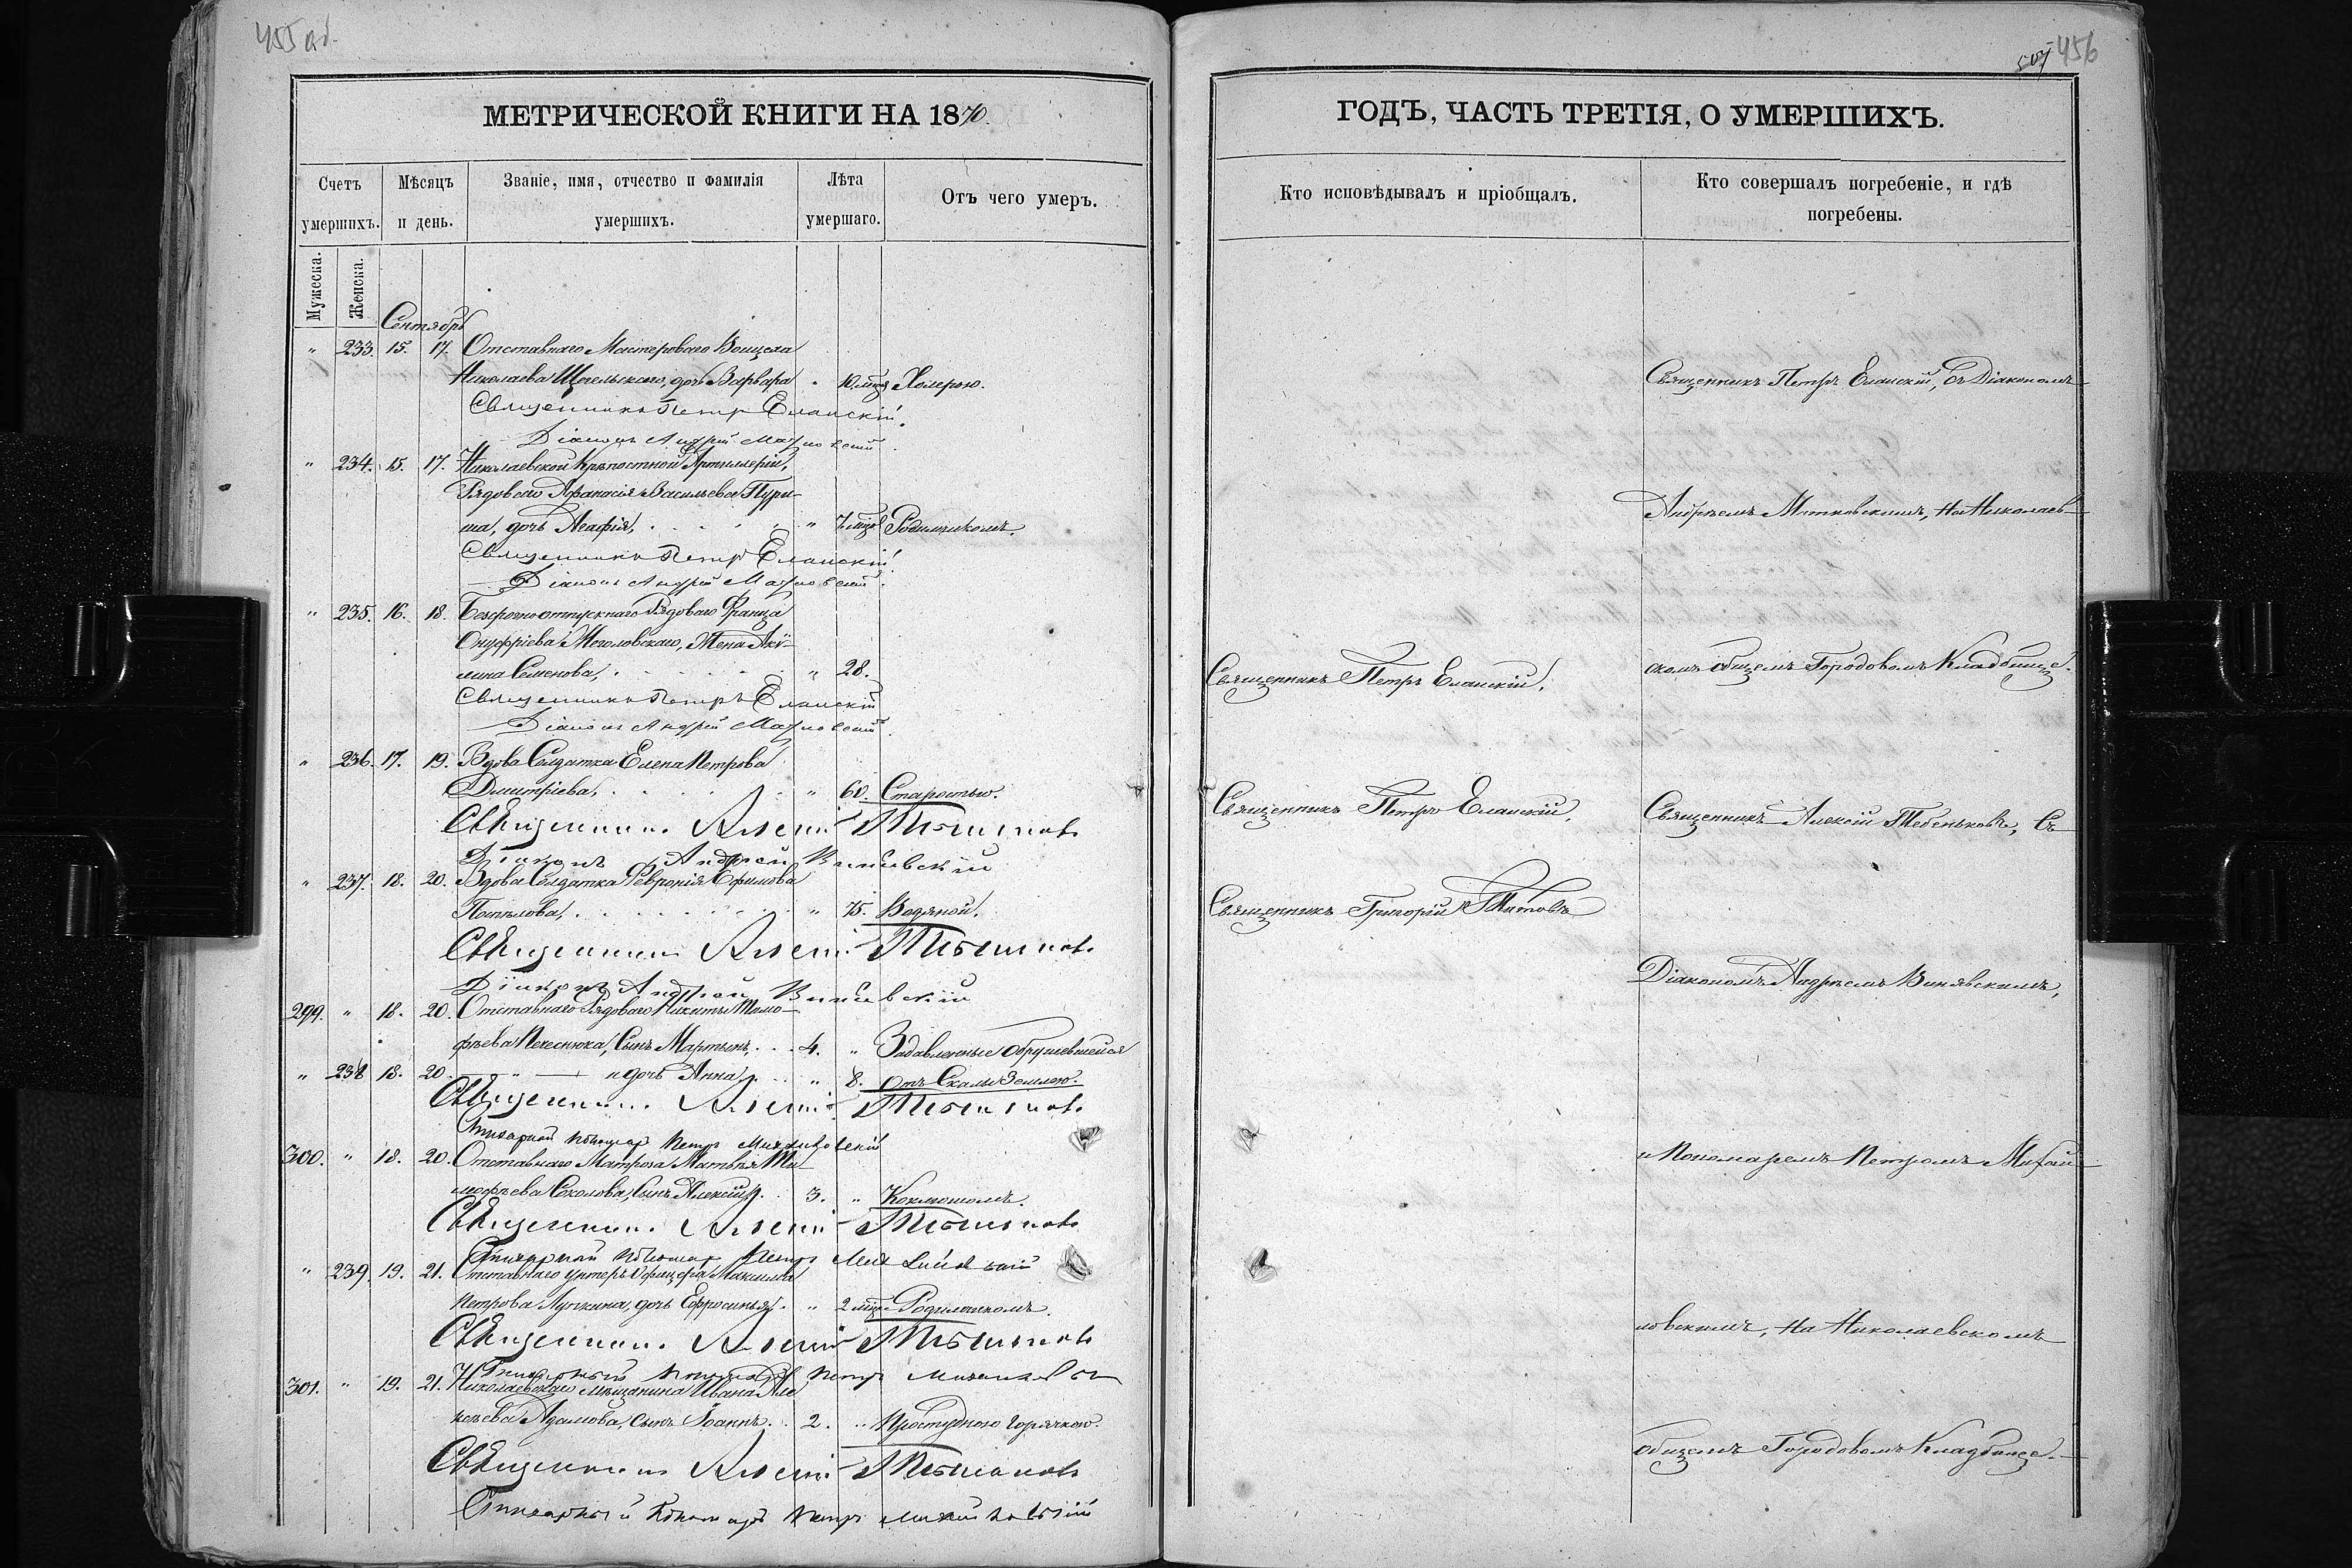 455 об.
МЕТРИЧЕСКОЙ КНИГИ НА 1870.
Счетъ умершихъ.
Мѣсяцъ и день.
Званіе, имя, отчество и фамилія умершихъ.
Лѣта умершаго.
Отъ чего умеръ.
Мужеска.
Женска.
Сентябрь
" 233. 15. 17. Отставнаго Мастероваго
Николаева дочь Варвара " 10 мцев Холерою.
Священникъ Петръ Еланскій.
Діаконъ Андрей
" 234. 15. 17. Николаевской Крѣпостной Артиллеріи,
Рядоваго Афанасія Васильева
дочь Агафія, " 7 мцев Родимчикомъ.
Священникъ Петръ Еланскій.
Діаконъ Андрей
" 235. 16. 18. Безсрочноотпускнаго Рядоваго Франца
Онуфріева Жена Аку-
лина Семенова, " 28.
Священникъ Петръ Еланскій
Діаконъ Андрей
" 236. 17. 19. Вдова Солдатка Елена Петрова
Дмитріева, " 60. Старостью.
Священникъ Алексій Тебеньковъ
Діаконъ Андрей Винявскій
" 237. 18. 20. Вдова Солдатка Февронія Ефимова
" 75. Водяной.
Священникъ Алексій Тебеньковъ
Діаконъ Андрей Винявскій
299. " 18. 20. Отставнаго Рядоваго Никиты Тимо-
фѣева Сынъ Мартынъ, 4. " Задавленные обрушившейся
" 238 18. 20. — " — и дочь Анна, " 8. отъ Скалы Землею.
Священникъ Алексій Тебеньковъ
Пономарь Петръ
300. " 18. 20. Отставнаго Матроза Матвѣя Ти-
мофѣева Соколова, Сынъ Алексій 3. " Коклюшомъ.
Священникъ Алексій Тебеньковъ
Пономарь Петръ
" 239. 19. 21. Отставнаго Унтеръ Офицера Максима
Петрова Лучкина, дочь Евфросинья " 2 мцев Родимчикомъ.
Священникъ Алексій Тебеньковъ
Пономарь Петръ
301. " 19. 21. Николаевскаго мѣщанина Ивана Але-
ксѣева Адамова, Сынъ Іоаннъ. 2. " Простудною горячкою.
Священникъ Алексій Тебеньковъ
Пономарь Петръ
507 456
ГОДЪ, ЧАСТЬ ТРЕТІЯ, О УМЕРШИХЪ.
Кто исповѣдывалъ и пріобщалъ.
Кто совершалъ погребеніе, и гдѣ погребены.
Священникъ Петръ Еланскій, съ Діакономъ
Андреемъ на Николаев-
Священникъ Петръ Еланскій,
скомъ общемъ Городовомъ Кладбище.
Священникъ Петръ Еланскій,
Священникъ Алексій Тебеньковъ, Съ
Священникъ Григорій Титовъ
Діакономъ Андреемъ Винявскимъ,
и Пономаремъ Петромъ Михай-
ловскимъ, на Николаевскомъ
общемъ Городовомъ Кладбище.